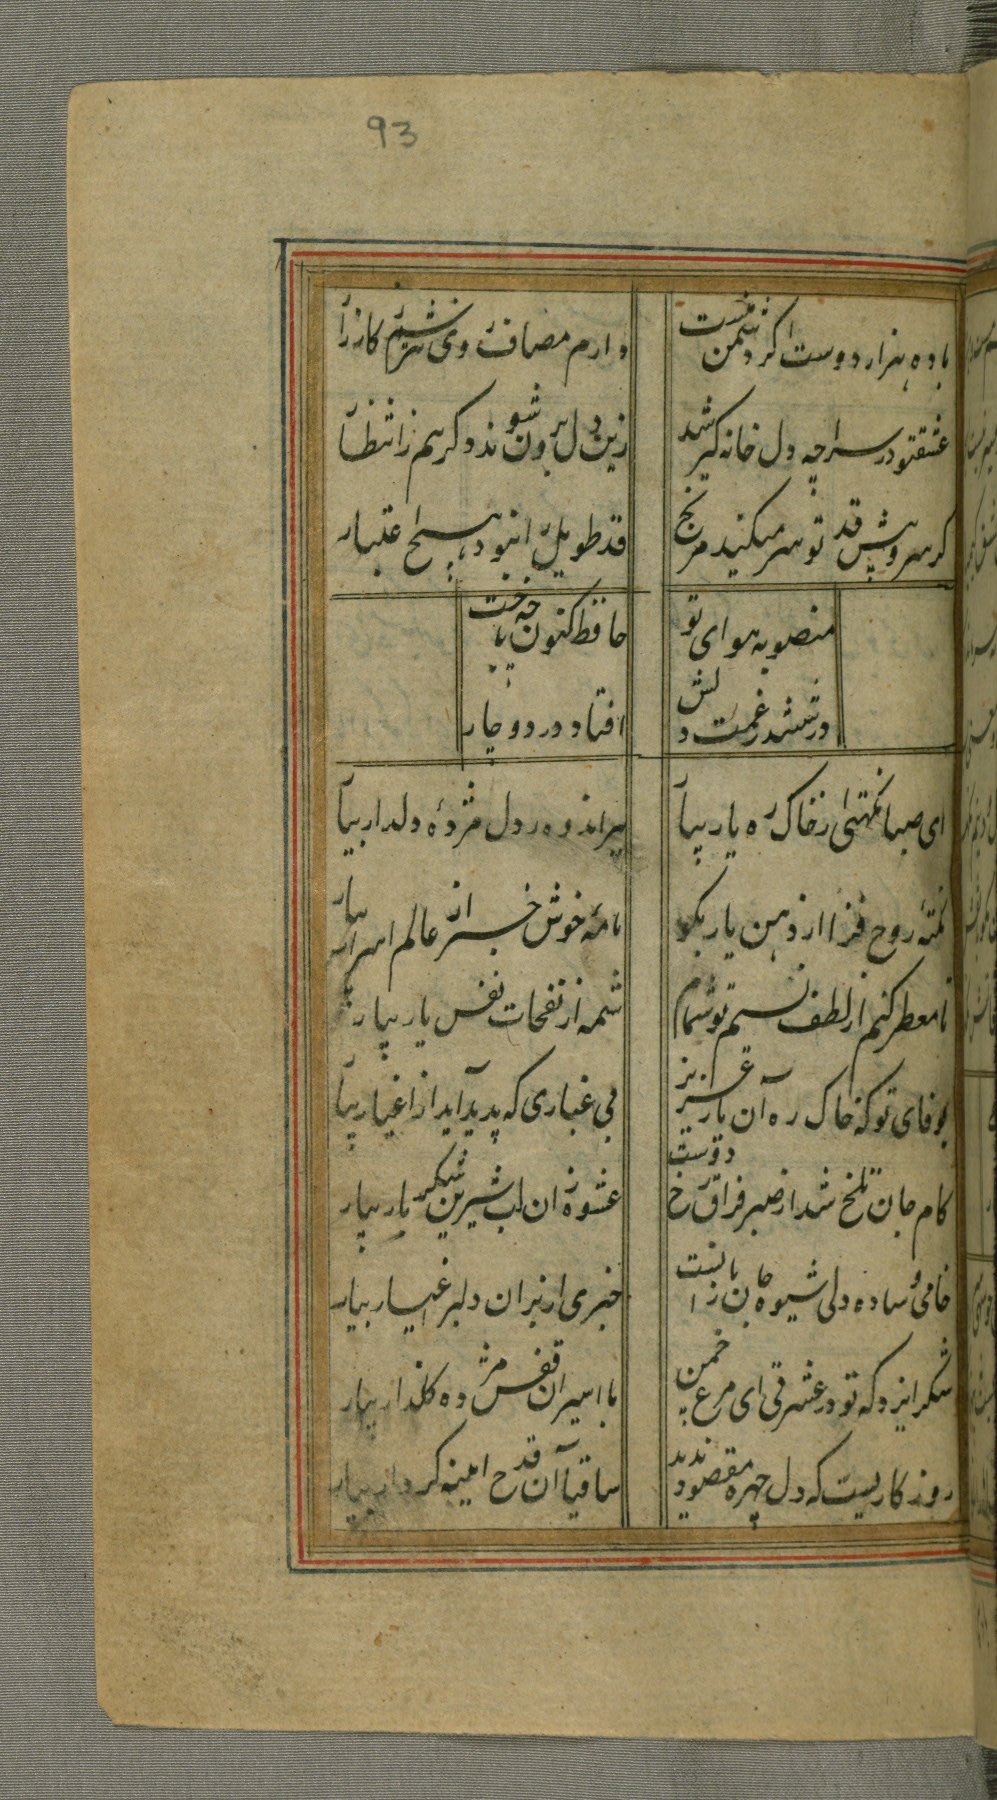 93
با ده هزار دوست اگر دشمن تست
دارم مصاف و نی شرم کارزار
عشقتو در سراچه دل خانه گیر شد
زین دل برون شوند و کر هم ز انتظار
کر سرو پیش قد تو سر میکشد مرنج
قد طویل را نبود هیچ اعتبار
منصوبه هوای تو
حافظ کنون چه باخت
در ششدر غمت دلش
افتاد در دو چار
ای صبا نکهتی از خاک ره یار بیار
ببر اندوه دل مژدهٔ دلدار بیار
نکتهٔ روح فزا از دهن یار بکو
نامهٔ خوش خبر از عالم اسرار بیار
تا معطر کنم از لطف نسیم تو مشام
شمه از نفحات نفس یار بیار
بوفای تو که خاک ره آن یار عزیز
بی غباری که پدید آید از اغیار بیار
کام جان تلخ شد از صبر فراق رخ دوست
عشوه زان لب شیرین شکر بار بیار
خامی و ساده دلی شیوه جان بازان نیست
خبری از بران دلبر عیار بیار
شکر ایزد که تو در عشرتی ای مرغ چمن
با اسیران قفس مژده گلزار بیار
روزگاریست که دل چهره مقصود ندید
ساقیا آن قدح آینه کردار بیار